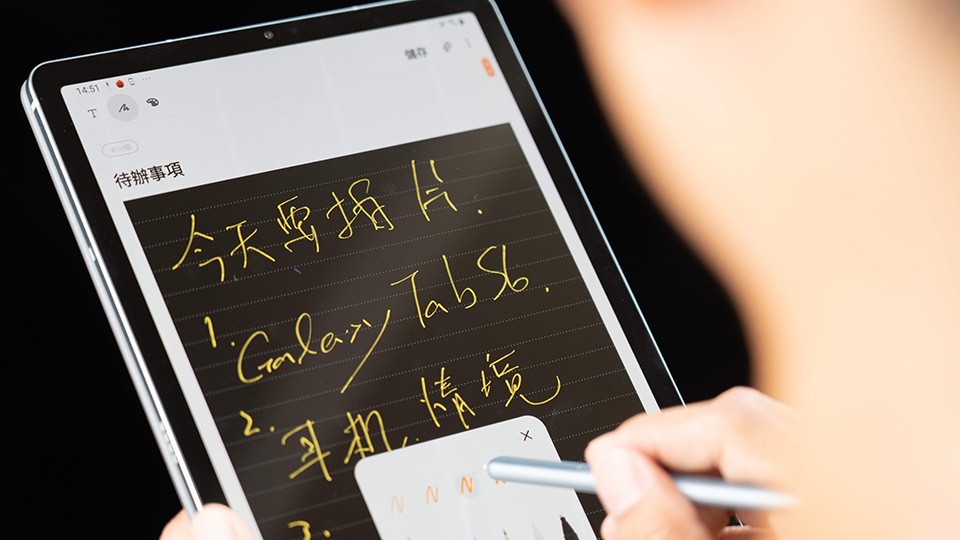 14:51
儲存
T
未分類
待辦事項
今天要 片.
1. Galaxy Tab S6.
2. 耳机.情境
3.